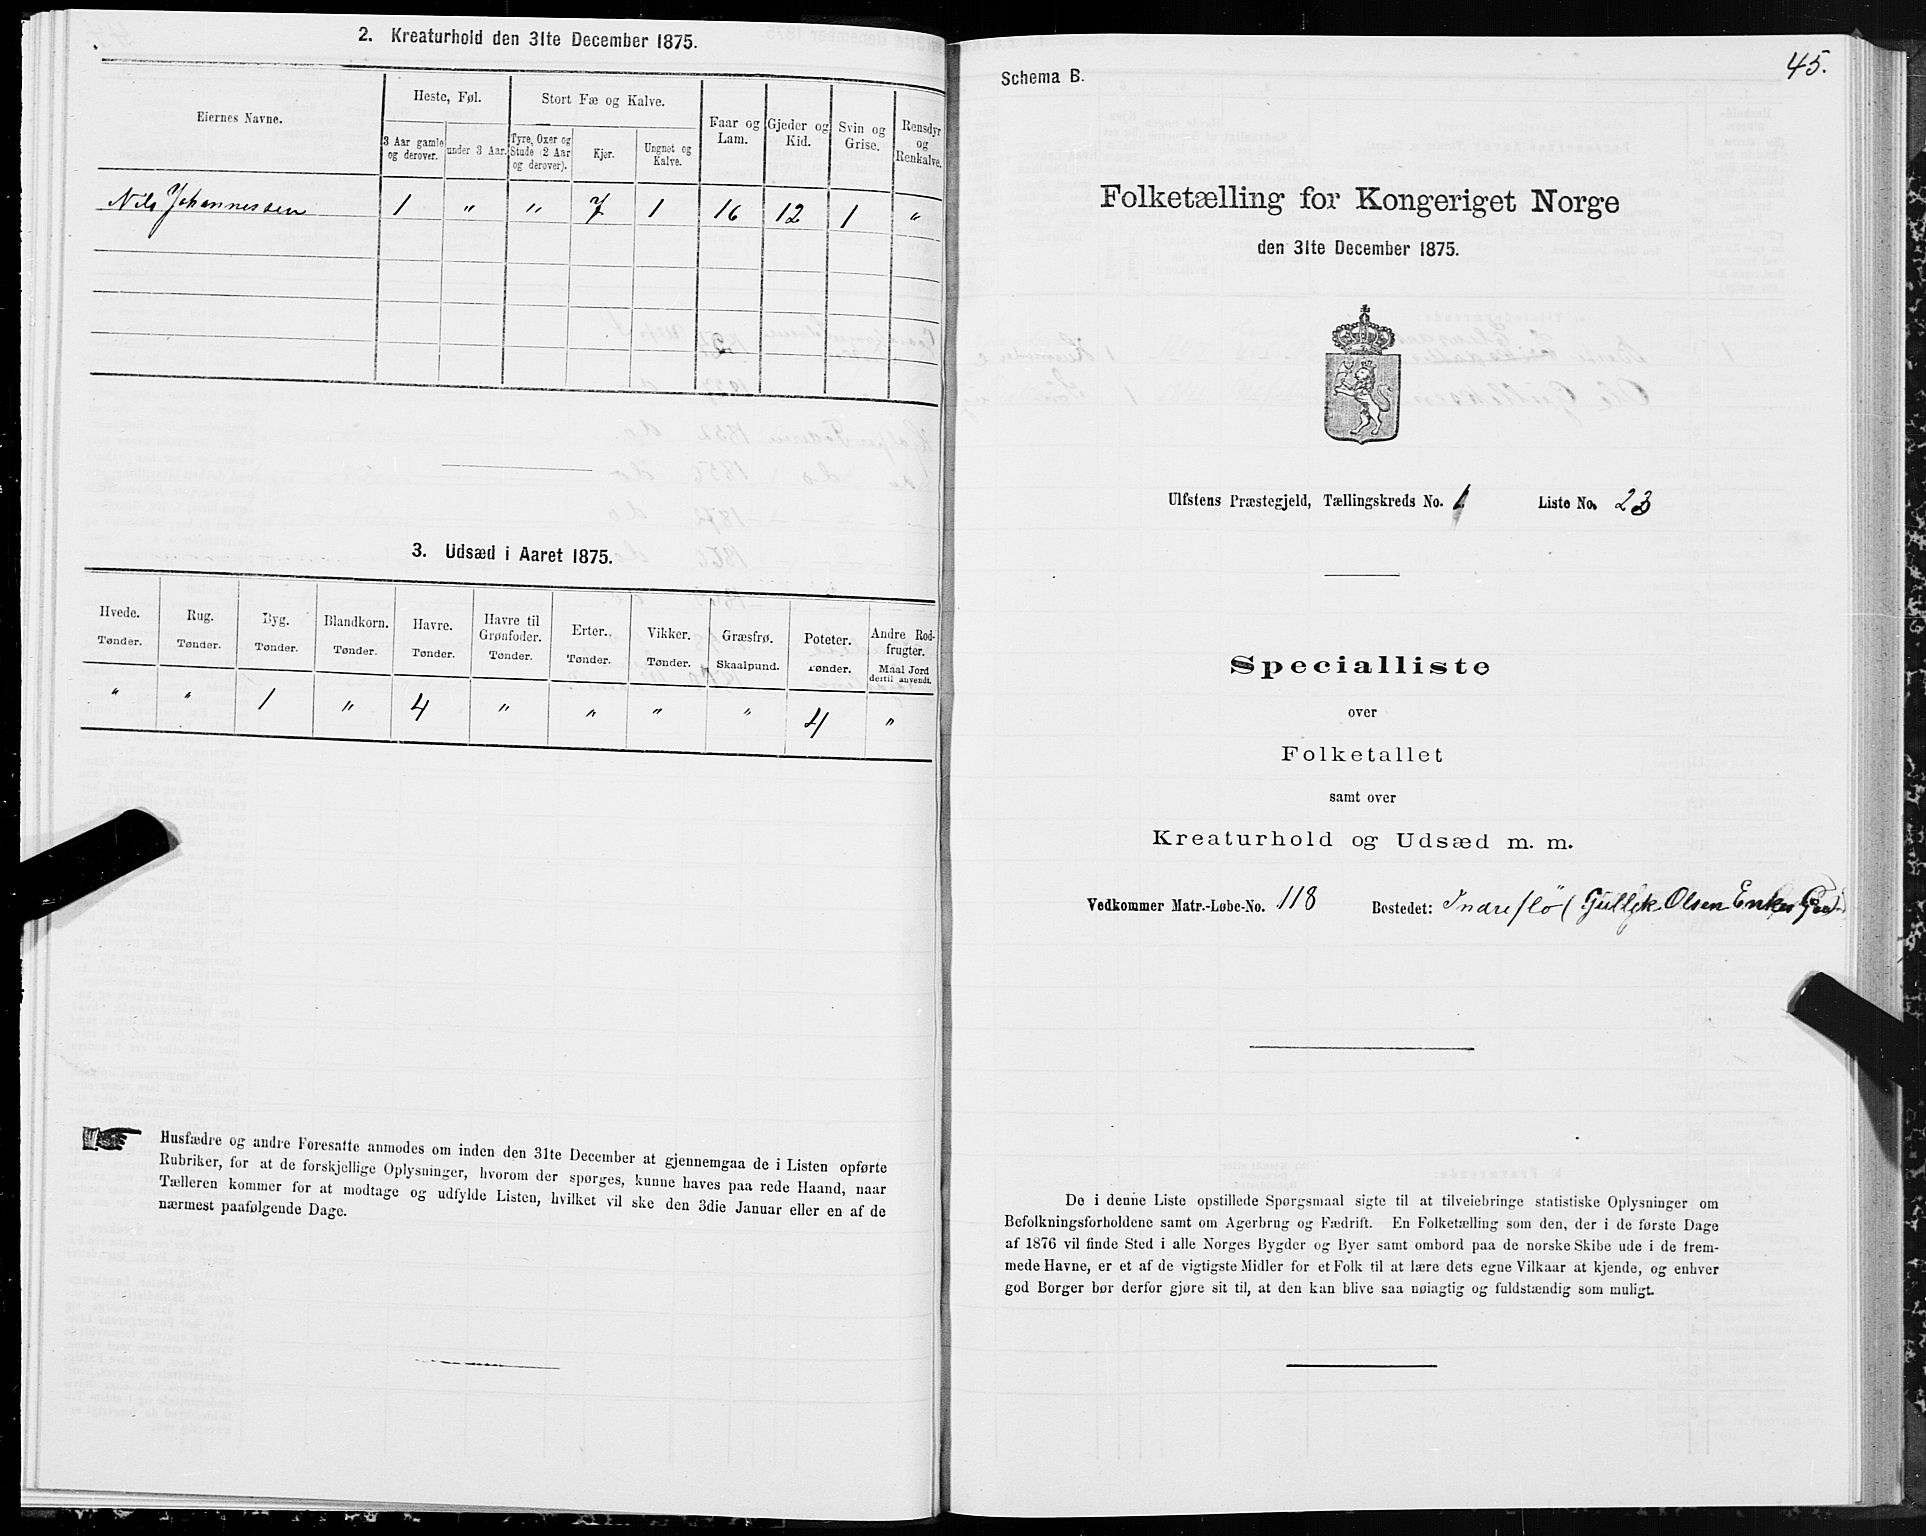 2. Kreaturhold den 31te December 1875.
Eiernes Navne.
Heste, Føl.
Stort Fæ og Kalve.
Faar og Lam.
Gjeder og Kid.
Svin og Grise.
Rensdyr og Renkalve.
3 Aar gamle og derover.
under 3 Aar.
Tyre, Oxer og Stude (2 Aar og derover).
Kjør.
Ungnet og Kalve.
Nils Johannessen 1 " " 7 1 16 12 1 "
3. Udsæd i Aaret 1875.
Hvede. Rug. Byg. Blandkorn. Havre. Havre til Grønfoder. Erter. Vikker. Græsfrø. Poteter. Andre Rodfrugter.
Tønder. Tønder. Tønder. Tønder. Tønder. Tønder. Tønder. Tønder. Skaalpund. Tønder. Maal Jord dertil anvendt.
" " 1 " 4 " " " " 4 "
Husfædre og andre Foresatte anmodes om inden den 31te December at gjennemgaa de i Listen opførte
Rubriker, for at de forskjellige Oplysninger, hvorom der spørges, kunne haves paa rede Haand, naar
Tælleren kommer for at modtage og udfylde Listen, hvilket vil ske den 3die Januar eller en af de
nærmest paafølgende Dage.
45.
Schema B.
Folketælling for Kongeriget Norge
den 31te December 1875.
Ulfstens Præstegjeld, Tællingskreds No. 1 Liste No. 23
Specialliste
over
Folketallet
samt over
Kreaturhold og Udsæd m. m.
Vedkommer Matr.-Løbe-No. 118 Bostedet: Indreflö (Gullik Olsen Enkes
De i denne Liste opstillede Spørgsmaal sigte til at tilveiebringe statistiske Oplysninger om
Befolkningsforholdene samt om Agerbrug og Fædrift. En Folketælling som den, der i de første Dage
af 1876 vil finde Sted i alle Norges Bygder og Byer samt ombord paa de norske Skibe ude i de frem-
mede Havne, er et af de vigtigste Midler for et Folk til at lære dets egne Vilkaar at kjende, og enhver
god Borger bør derfor gjøre sit til, at den kan blive saa nøiagtig og fuldstændig som muligt.